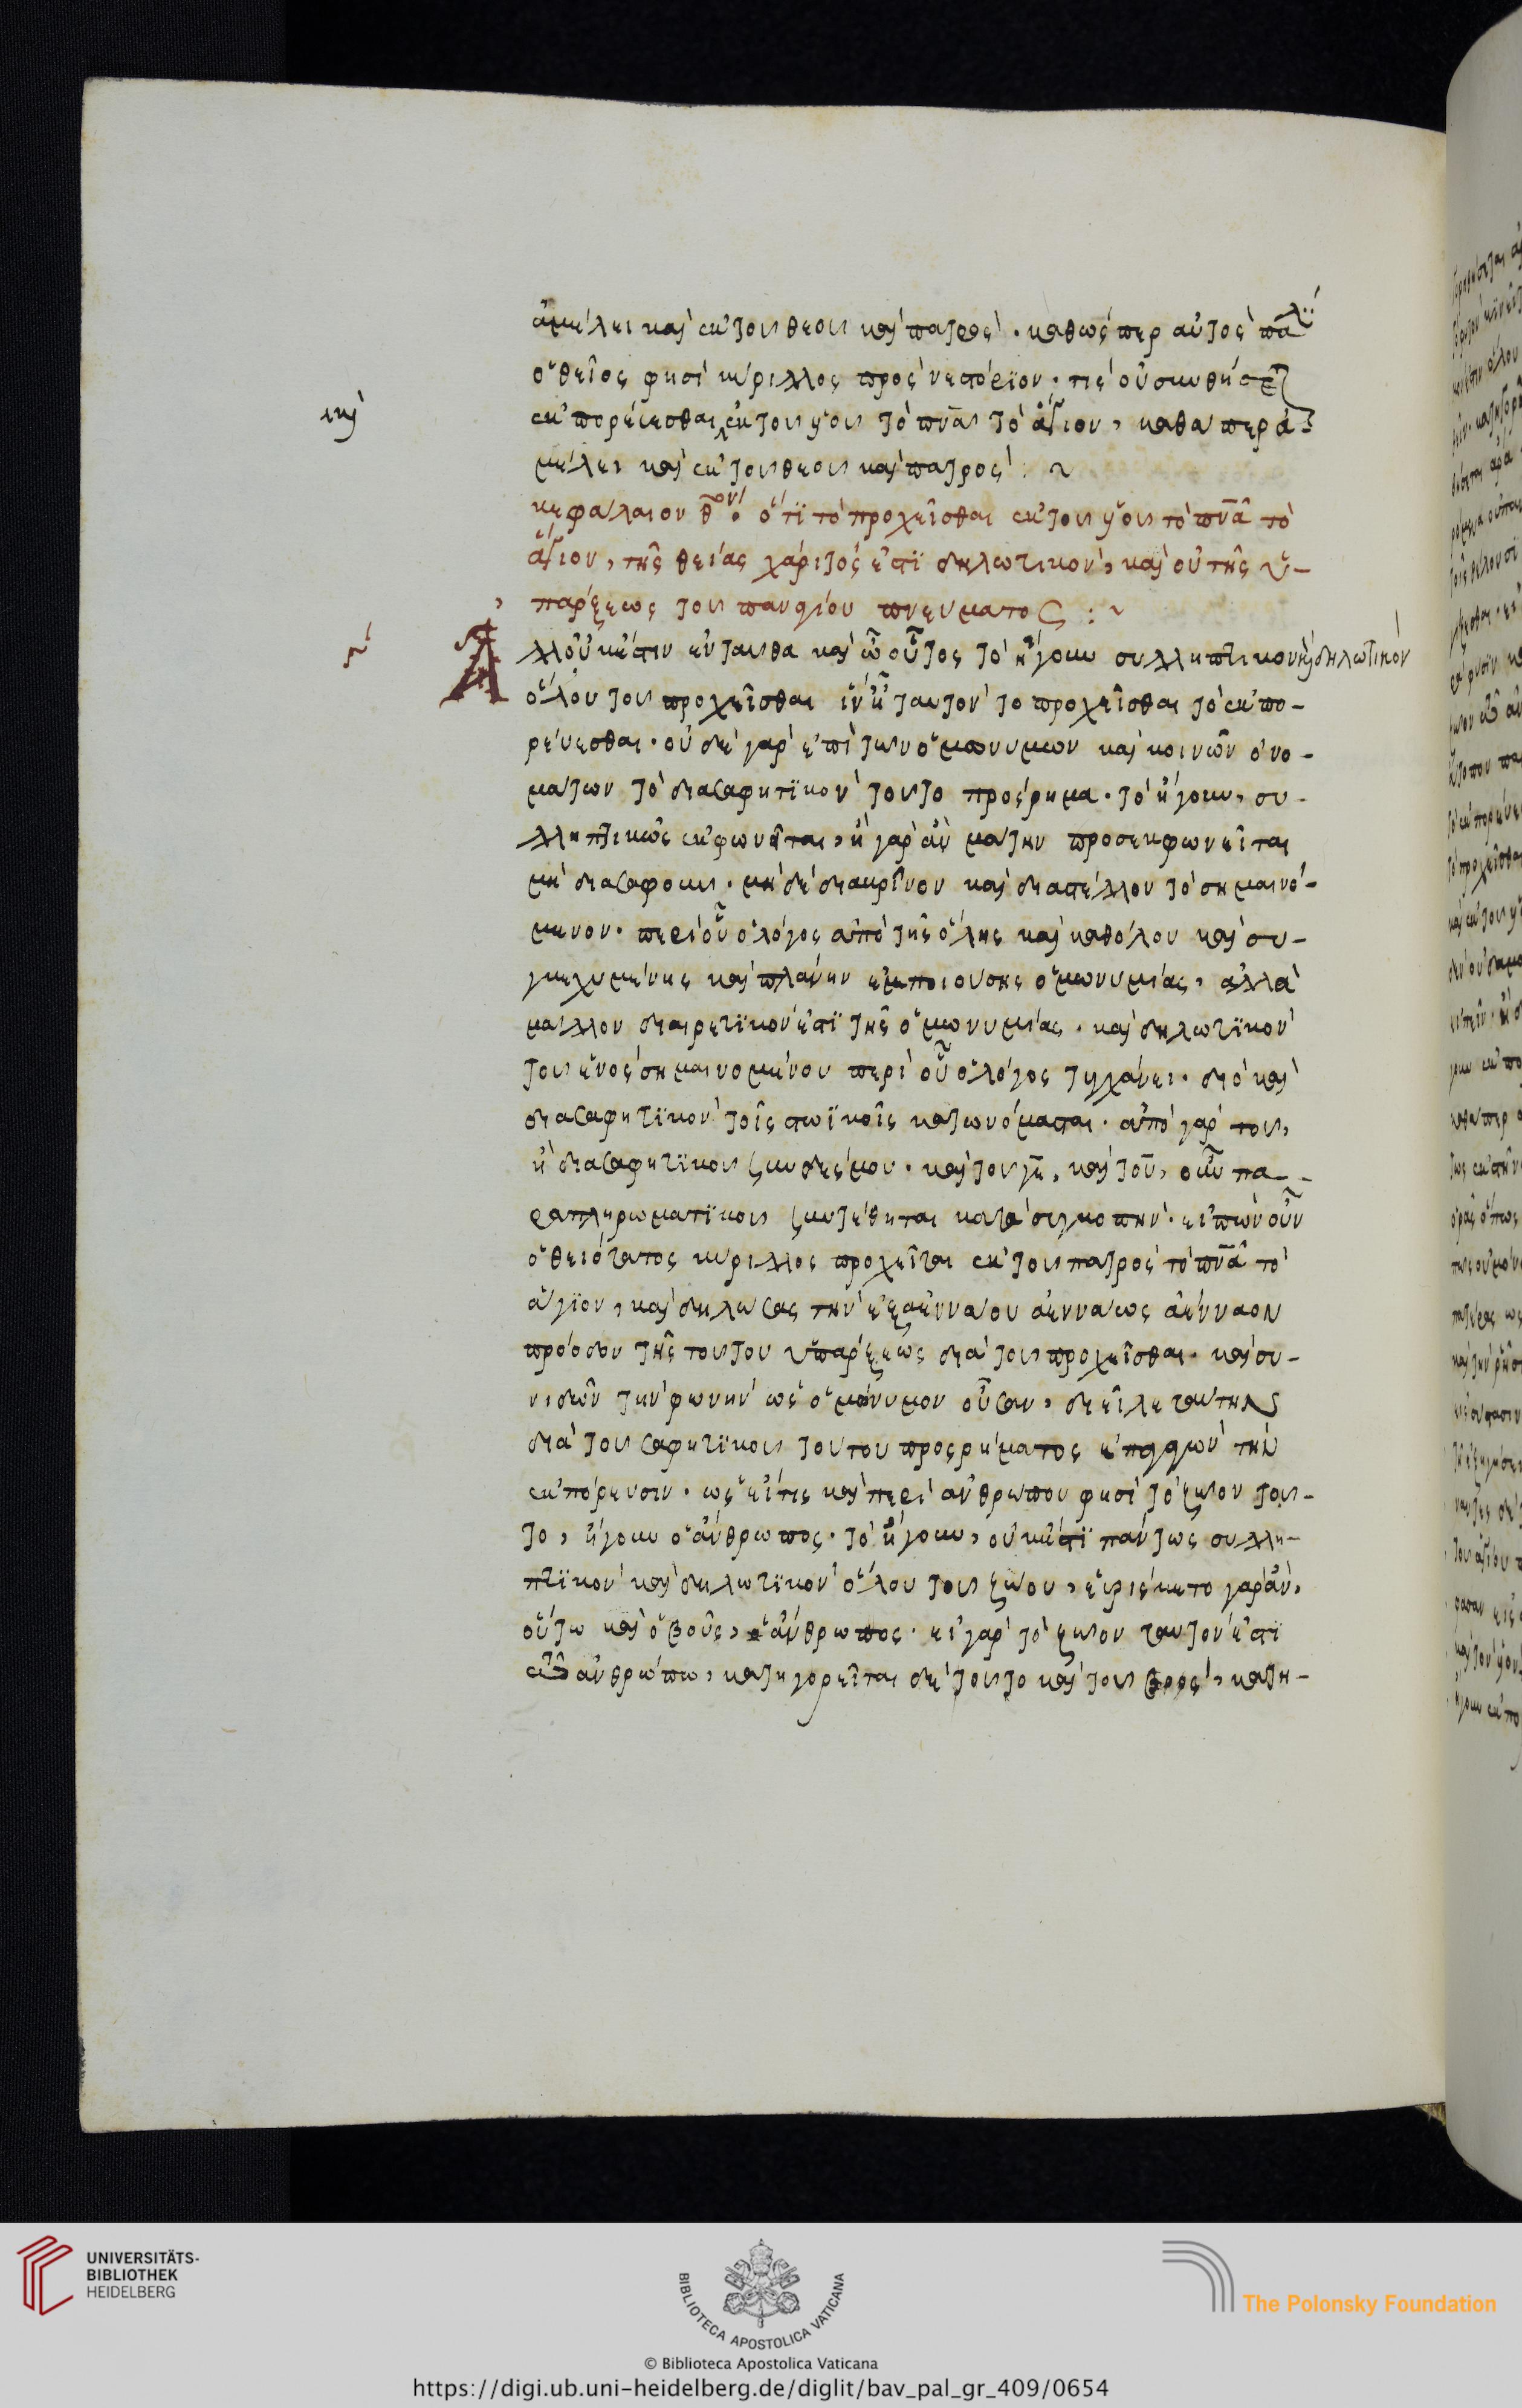 ἀμέλει καὶ ἐκ τοῦ θεοῦ καὶ πατρὸς· καθώς περ αὐτὸς πάλι
ὁ θεῖος φησὶ κύριλλος πρὸς νεστόριον· τίς οὐ
καὶ
ἐκπορεύεσθαι ἐκ τοῦ υἱοῦ τὸ πνᾶ τὸ ἅγιον, καθάπερ ἀ-
μέλει καὶ ἐκ τοῦ θεοῦ καὶ πατρός:
κεφάλαιον θ̅ον· ὅτι τὸ προχεῖσθαι ἐκ τοῦ υἱοῦ τὸ πνᾶ τὸ
ἅγιον, τῆς θείας χάριτός ἐστι δηλωτικὸν, καὶ οὐ τῆς ὑ-
πάρξεως τοῦ παναγίου πνεύματος:
Ἀλλ' οὐκ ἔστιν ἐνταῦθα καὶ ὦ οὗτος τὸ ἤγουν συλληπτικὸν καὶ δηλωτικὸν
ὅλου τοῦ προχεῖσθαι ἵν' ᾖ ταυτὸν τὸ προχεῖσθαι τὸ ἐκπο-
ρεύεσθαι· οὐδὲ γὰρ ἐπὶ τῶν ὁμωνύμων καὶ κοινῶν ὀνο-
μάτων τὸ διασαφητικὸν τοῦτο πρόσρημα· τὸ ἤγουν, συ-
λληπτικῶς ἐκφωνεῖται, ἢ γὰρ ἂν μάτην προσεκφωνεῖται
μὴ διασαφοῦν· μηδὲ διακρῖνον καὶ διαστέλλον τὸ σημαινό-
μενον· περὶ οὗ ὁ λόγος ἀπὸ τῆς ὅλης καὶ καθόλου καὶ συ-
γκεχυμένης καὶ πλάνην ἐμποιούσης ὁμωνυμίας, ἀλλὰ
μᾶλλον διαιρετικὸν ἐστὶ τῆς ὁμωνυμίας· καὶ δηλωτικὸν
τοῦ ἑνὸς σημαινομένου περὶ οὗ ὁ λόγος τυγχάνει· διὸ καὶ
διασαφητικὸν τοῖς στωϊκοῖς κατωνόμασται· ἀπὸ γὰρ τοῦ,
ἢ διασαφητικοῦ συνδέσμου· καὶ τοῦ γε, καὶ τοῦ, οὖν πα-
ραπληρωματικοῦ συντέθηται κατὰ συγκοπήν· εἰπὼν οὖν
ὁ θειότατος κύριλλος προχεῖται ἐκ τοῦ πατρὸς τὸ πνᾶ τὸ
ἅγιον, καὶ δηλώσας τὴν ἐξ ἀεννάου ἀεννάως ἀένναον
πρόοδον τῆς τούτου ὑπάρξεως διὰ τοῦ προχεῖσθαι· καὶ συ-
νιδὼν τὴν φωνὴν ὡς ὁμώνυμον οὖσαν, διεῖλε ταύτην
διὰ τοῦ σαφητικοῦ τούτου προσρήματος ἐπαγαγὼν τὴν
ἐκπόρευσιν· ὡς εἴ τις καὶ περὶ ἀνθρώπου φησὶ τὸ ζῶον τοῦ-
το, ἤγουν ὁ ἄνθρωπος· τὸ ἤγουν, οὐκ ἔστι πάντως συλλη-
πτικὸν καὶ δηλωτικὸν ὅλου τοῦ ζώου, εὑρίσκετο γὰρ ἂν,
οὕτω καὶ ὁ βοῦς, ὁ ἄνθρωπος· εἰ γὰρ τὸ ζῶον ταυτόν ἐστι
τῶ ἀνθρώπω, κατηγορεῖται δὲ τοῦτο καὶ τοῦ βοὸς, κατη-
UNIVERSITÄTS-
BIBLIOTHEK
HEIDELBERG
BIBLIOTECA APOSTOLICA VATICANA
The Polonsky Foundation
© Biblioteca Apostolica Vaticana
https://digi.ub.uni-heidelberg.de/diglit/bav_pal_gr_409/0654